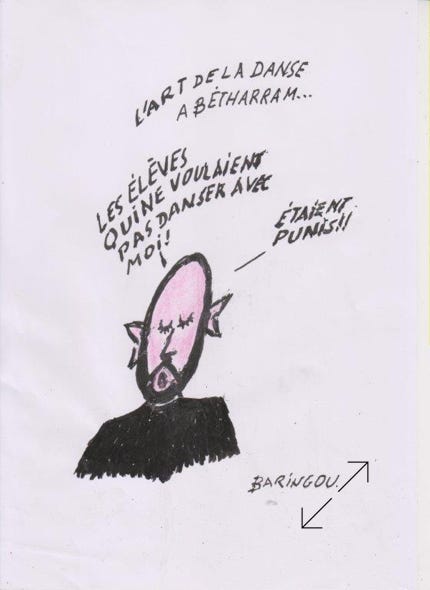 L'ART DE LA DANSE
A BÉTHARRAM...
LES ÉLÈVES
QUI NE VOULAIENT
PAS DANSER AVEC
MOI!
ÉTAIENT
PUNIS!!
BARINGOU.